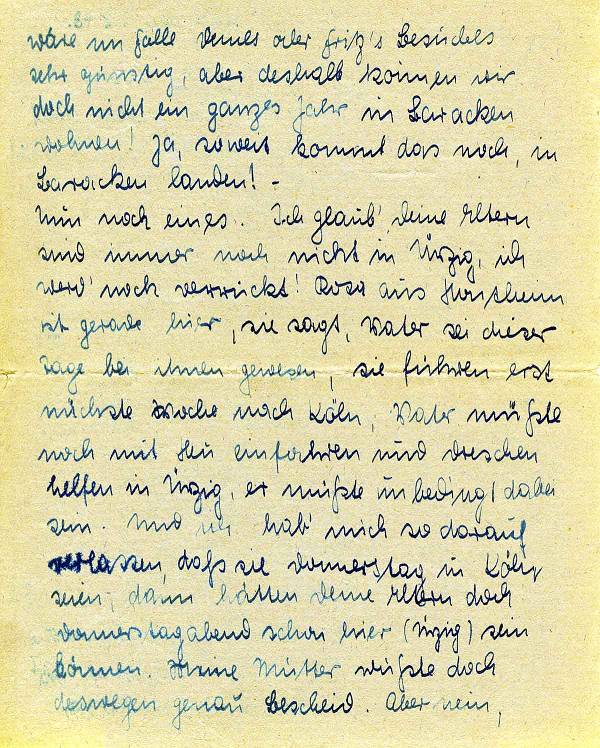 wäre im Falle Deines oder Fritz's Besuches
sehr günstig, aber deshalb können wir
doch nicht ein ganzes Jahr in Baracken
wohnen! Ja, soweit kommt das noch, in
Baracken landen! -
Nun noch eines. Ich glaub' Deine Eltern
sind immer noch nicht in Ürzig, ich
werd' noch verrückt! Rosa aus
ist gerade hier, sie sagt, Vater sei dieser
Tage bei ihnen gewesen, sie führen erst
nächste Woche nach Köln, Vater müßte
noch mit Heu einfahren und dreschen
helfen in Ürzig, er müßte unbedingt dabei
sein. Und ich hab' mich so darauf
verlassen, daß sie Donnerstag in Köln
seien, dann hätten Deine Eltern doch
Donnerstagabend schon hier (Ürzig) sein
können. Meine Mutter wußte doch
deswegen genau Bescheid. Aber nein,